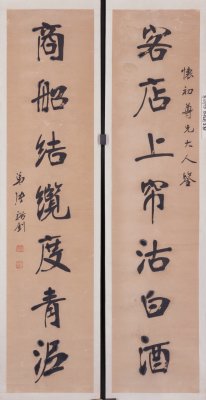 懷初尊兄大人鑒
客店上帘沽白酒
商船結纜度青泥
弟張裕釗